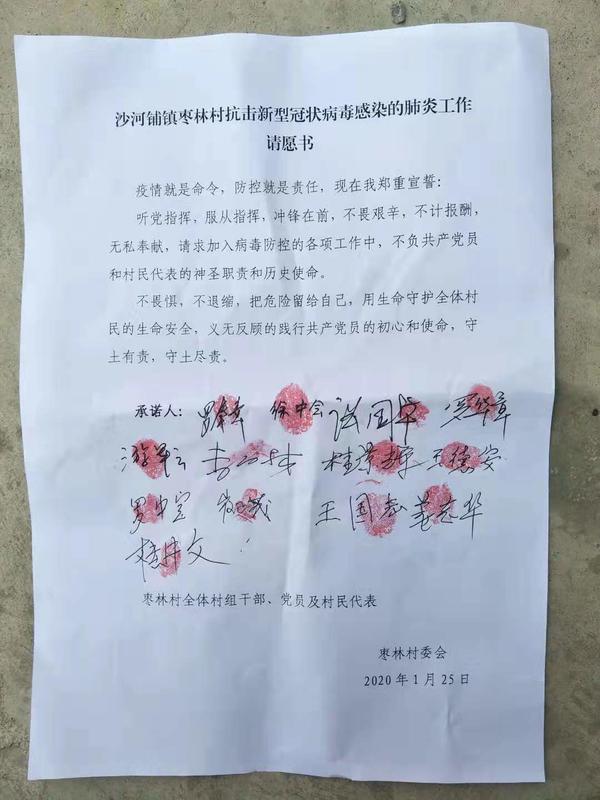 沙河铺镇枣林村抗击新型冠状病毒感染的肺炎工作
请愿书
疫情就是命令，防控就是责任，现在我郑重宣誓：
听党指挥，服从指挥，冲锋在前，不畏艰辛，不计报酬，
无私奉献，请求加入病毒防控的各项工作中，不负共产党员
和村民代表的神圣职责和历史使命。
不畏惧，不退缩，把危险留给自己，用生命守护全体村
民的生命安全，义无反顾的践行共产党员的初心和使命，守
土有责，守土尽责。
承诺人： 徐中会
王德安
王国志
枣林村全体村组干部、党员及村民代表
枣林村委会
2020年1月25日